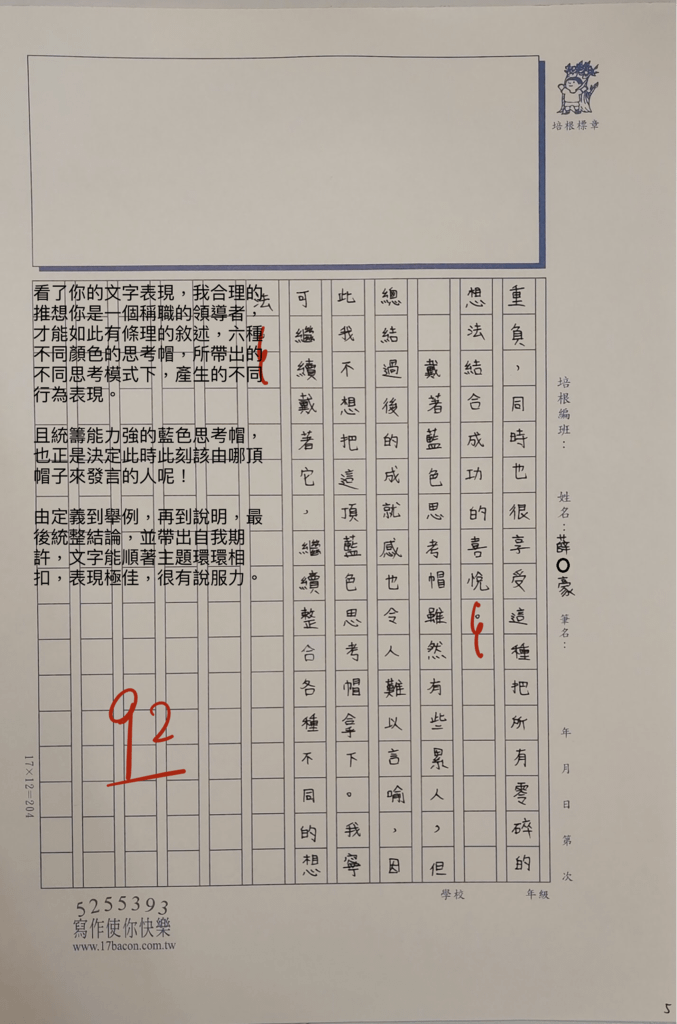 培根標章
重負，同時也很享受這種把所有零碎的
想法結合成功的喜悅。
戴著藍色思考帽雖然有些累人，但
總結過後的成就感也令人難以言喻，因
此我不想把這頂藍色思考帽拿下。我寧
可繼續戴著它，繼續整合各種不同的想
法。
看了你的文字表現，我合理的
推想你是一個稱職的領導者，
才能如此有條理的敘述，六種
不同顏色的思考帽，所帶出的
不同思考模式下，產生的不同
行為表現。
且統籌能力強的藍色思考帽，
也正是決定此時此刻該由哪頂
帽子來發言的人呢！
由定義到舉例，再到說明，最
後統整結論，並帶出自我期
許，文字能順著主題環環相
扣，表現極佳，很有說服力。
92
培根編班： 姓名：薛○豪 筆名： 年 月 日 第 次
17×12=204
學校 年級
5255393
寫作使你快樂
www.17bacon.com.tw
5